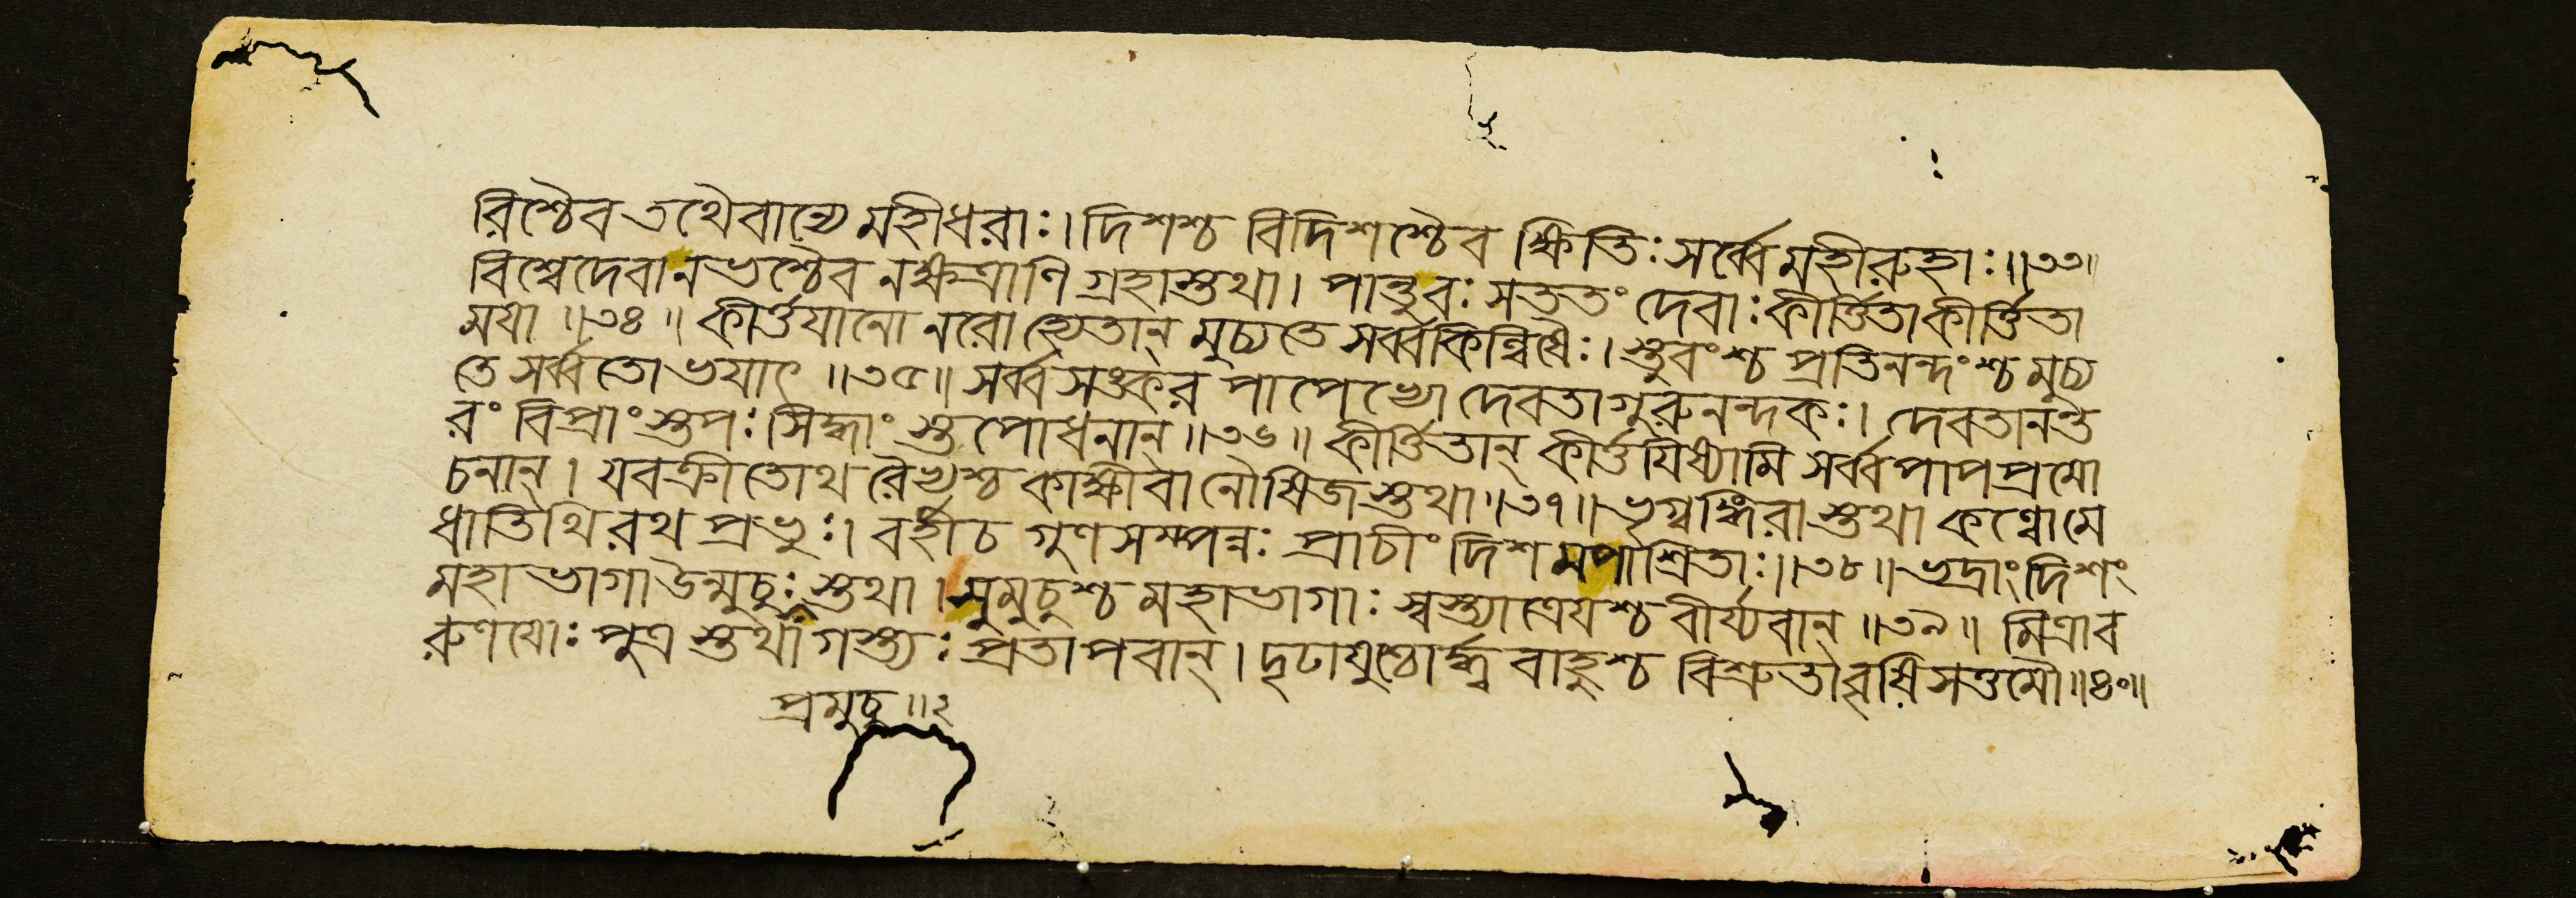 রিশ্চৈব তথৈবান্যে মহীধরাঃ। দিশশ্চ বিদিশশ্চৈব ক্ষিতিঃ সর্ব্বে মহীরুহাঃ॥৩৩॥
বিশ্বেদেবা নভশ্চৈব নক্ষত্রাণি গ্রহাস্তথা। পান্তুবঃ সততং দেবাঃ কীর্ত্তিতাকীর্ত্তিতা
ময়া ॥৩৪॥ কীর্ত্তয়ানো নরো হ্যেতান্ মুচ্যতে সর্ব্বকিল্বিষৈঃ। স্তুবংশ্চ প্রতিনন্দংশ্চ মুচ্য
তে সর্ব্বতো ভয়াৎ ॥৩৫॥ সর্ব্বসঙ্কর পাপেভ্যো দেবতাগুরুনন্দকঃ। দেবতানন্ত
রং বিপ্রাংস্তপঃ সিদ্ধাং স্তপোধনান্ ॥৩৬॥ কীর্ত্তিতান্ কীর্ত্তয়িষ্যামি সর্ব্বপাপপ্রমো
চনান্। যবক্রীতোথ রৈভ্যশ্চ কাক্ষীবানৌষিজস্তথা ॥৩৭॥ ভৃগ্বঙ্গিরাস্তথা কণ্বোমে
ধাতিথিরথ প্রভুঃ। বর্হীচ গুণসম্পন্নঃ প্রাচীং দিশমপাশ্রিতাঃ॥৩৮॥ ভদ্রাং দিশং
মহাভাগা উন্মুচুঃ স্তথা। মুমুচুশ্চ মহাভাগাঃ স্বস্ত্যাত্রেয়শ্চ বীর্য্যবান্ ॥৩৯॥ মিত্রাব
রুণয়োঃ পুত্র স্তথাগস্ত্যঃ প্রতাপবান্। দৃঢায়ুশ্চোর্দ্ধ্ববাহুশ্চ বিশ্রুতাবৃষিসত্তমৌ॥৪০॥
প্রমুচু॥২